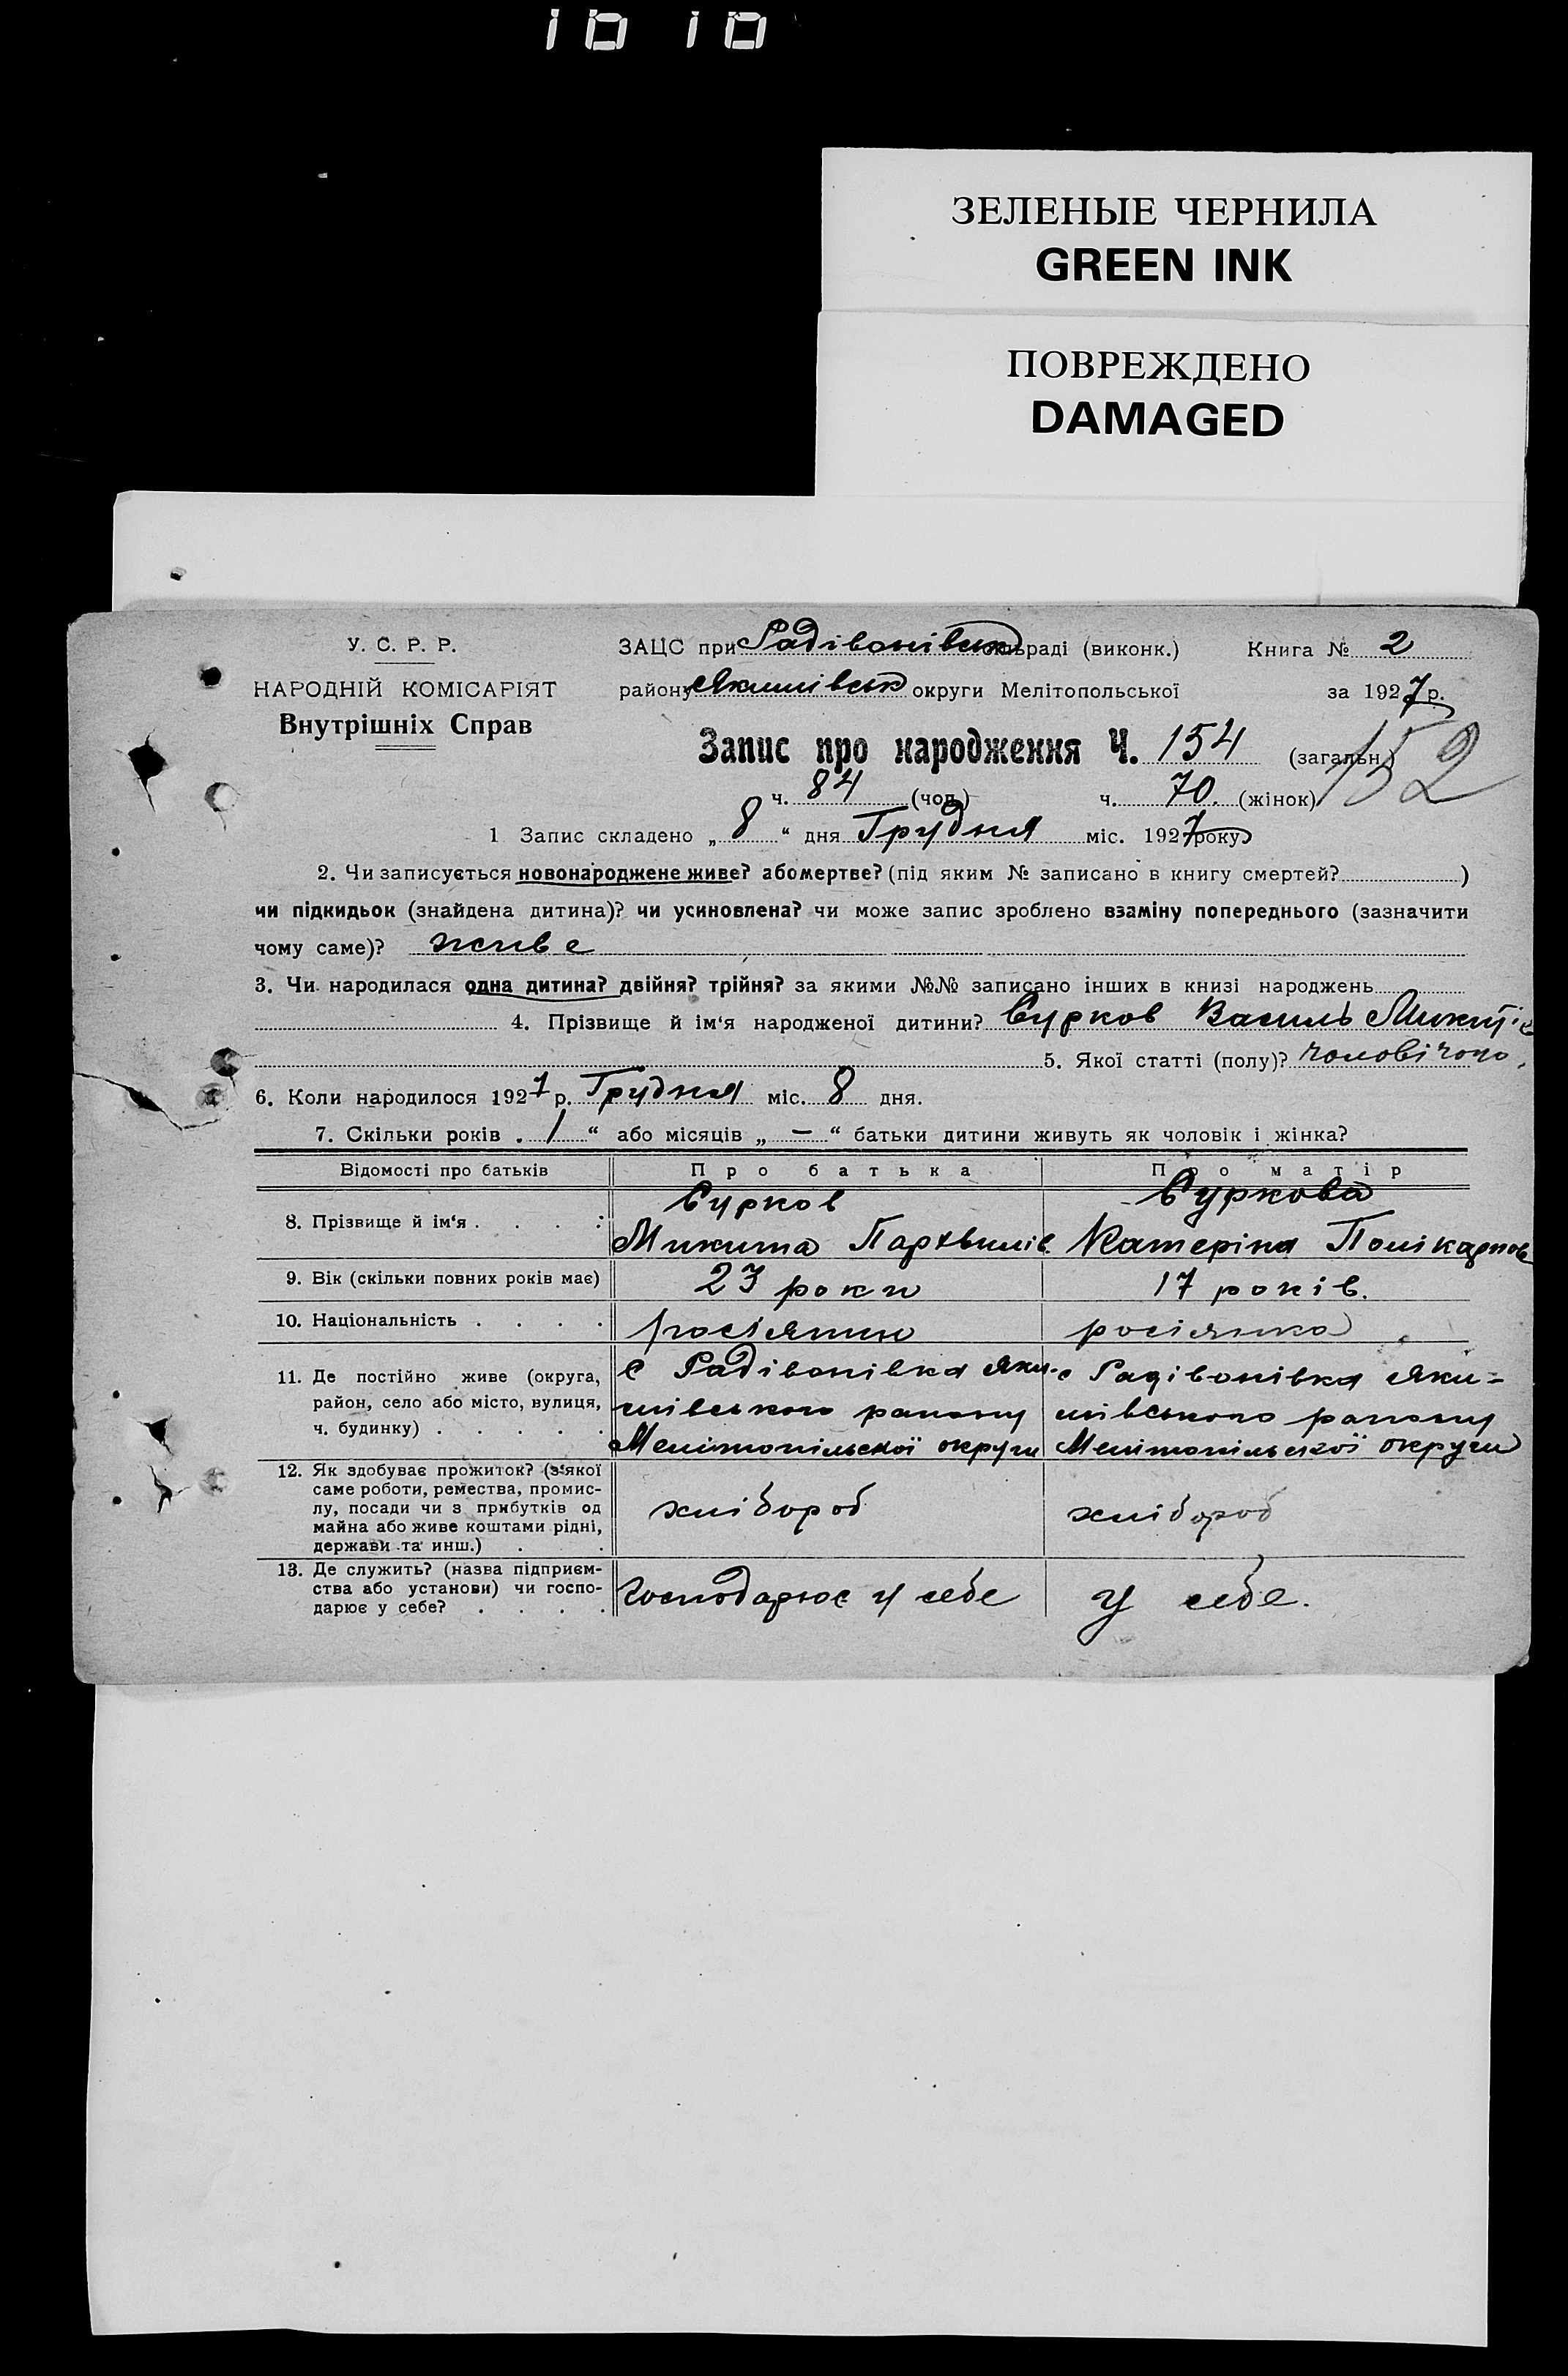 ЗЕЛЕНЫЕ ЧЕРНИЛА
GREEN INK
ПОВРЕЖДЕНО
DAMAGED
У. С. Р. Р.
НАРОДНІЙ КОМІСАРІЯТ
Внутрішніх Справ
ЗАЦС при Радівонівськ раді (виконк.) Книга № 2
району Якимівськ округи Мелітопольської за 1927 р.
Запис про народження Ч. 154 (загальн.) 152
ч. 84 (чол.) ч. 70. (жінок)
1 Запис складено „ 8 “ дня Грудня міс. 1927 року
2. Чи записується новонароджене живе? або мертве? (під яким № записано в книгу смертей? )
чи підкидьок (знайдена дитина)? чи усиновлена? чи може запис зроблено взаміну попереднього (зазначити
чому саме)? живе
3. Чи народилася одна дитина? двійня? трійня? за якими №№ записано інших в книзі народжень
4. Прізвище й ім‘я народженої дитини? Сурков Василь Микит.
5. Якої статті (полу)? чоловічого
6. Коли народилося 1927 р. Грудня міс. 8 дня.
7. Скільки років „ 1 “ або місяців „ — “ батьки дитини живуть як чоловік і жінка?
Відомості про батьків Про батька Про матір
8. Прізвище й ім‘я . . . . Сурков Суркова
Микита Пархвилів. Катеріна Полікарпов
9. Вік (скільки повних років має) 23 роки 17 років.
10. Національність . . . . росіянин росіянка
11. Де постійно живе (округа, район, село або місто, вулиця, ч. будинку) . . . . .
с Радівонівка Яки-
мівського району
Мелітопільскої округи
с Радівонівка Яки-
мівського району
Мелітопільскої округи
12. Як здобуває прожиток? (з‘якої
саме роботи, ремества, промис-
лу, посади чи з прибутків од
майна або живе коштами рідні,
держави та инш.) . .
хлібороб хлібороб
13. Де служить? (назва підприєм-
ства або установи) чи госпо-
дарює у себе? . . . .
господарює у себе у себе.